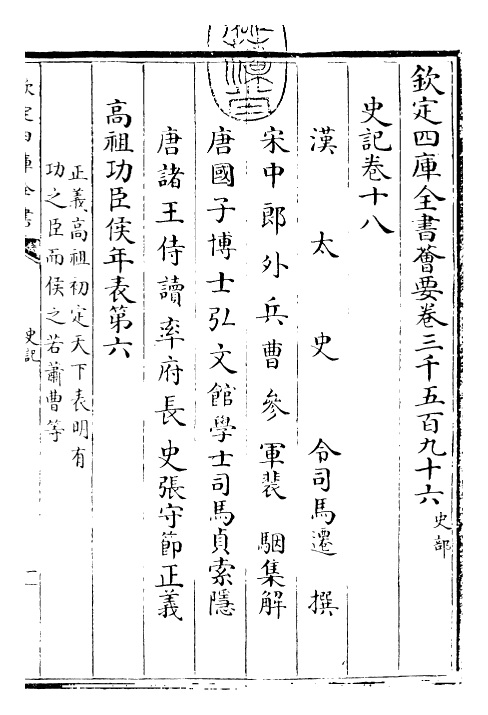 欽定四庫全書薈要卷三千五百九十六 史部
史記卷十八
漢太史令司馬遷撰
宋中郎外兵曹參軍裴駰集解
唐國子博士弘文館學士司馬貞索隱
唐諸王侍讀率府長史張守節正義
高祖功臣侯年表第六
正義高祖初定天下表明有
功之臣而侯之若蕭曹等
欽定四庫全書
史記
一